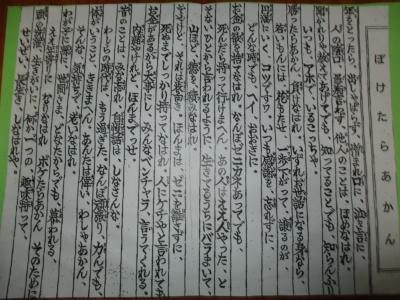 ぼけたらあかん
年をとったら、出しゃばらず、憎まれ口に、泣き言に
人の陰口、愚痴言わず、他人のことは、ほめなはれ
聞かれりゃ教えてあげても、知ってることでも、知らんふり
いつでも、アホでいるこっちゃ
勝ったらあかん、負けなはれ、いずれお世話になる身なら、
若いもんには、花もたせ、一歩下がって、譲るのが
円満に、コツですわ、いつも感謝を、忘れずに
どんな時でも、ヘイ、おおきに
お金の欲を、捨てなはれ、なんぼゼニカネあっても、
死んだら持って行けまへん、あの人はええ人やった、と
そないひとから言われるように、生きてるうちにバラまいて、
山ほど、徳を積みなはれ
そやけど、それは表向き、ほんまは、ゼニを離さずに、
死ぬまでしっかり持ってなはれ、人にケチやと言われても
お金があるから大事にし、みんなベンチャラ、言うてくれる。
内緒やけれど、ほんまでっせ。
昔のことは、みな忘れ、自慢話は、しなさんな、
わしらの時代は、もう過ぎた、なんぼ頑張り、力んでも、
体いうこと、ききまへん、あんたは偉い、わしゃあかん、
そんな、気持ちで、おりなはれ
わが子に、孫に、世間さま、どなたからでも、慕われる、
ええ年寄りに、なりなはれ、ボケたらあかん、そのために
頭の洗濯、生きがいに、何か一つの、趣味持って、
せいぜい、長生き、しなはれや。